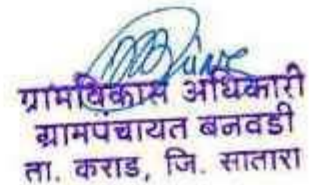 ग्रामविकास अधिकारी
ग्रामपंचायत बनवडी
ता. कराड, जि. सातारा